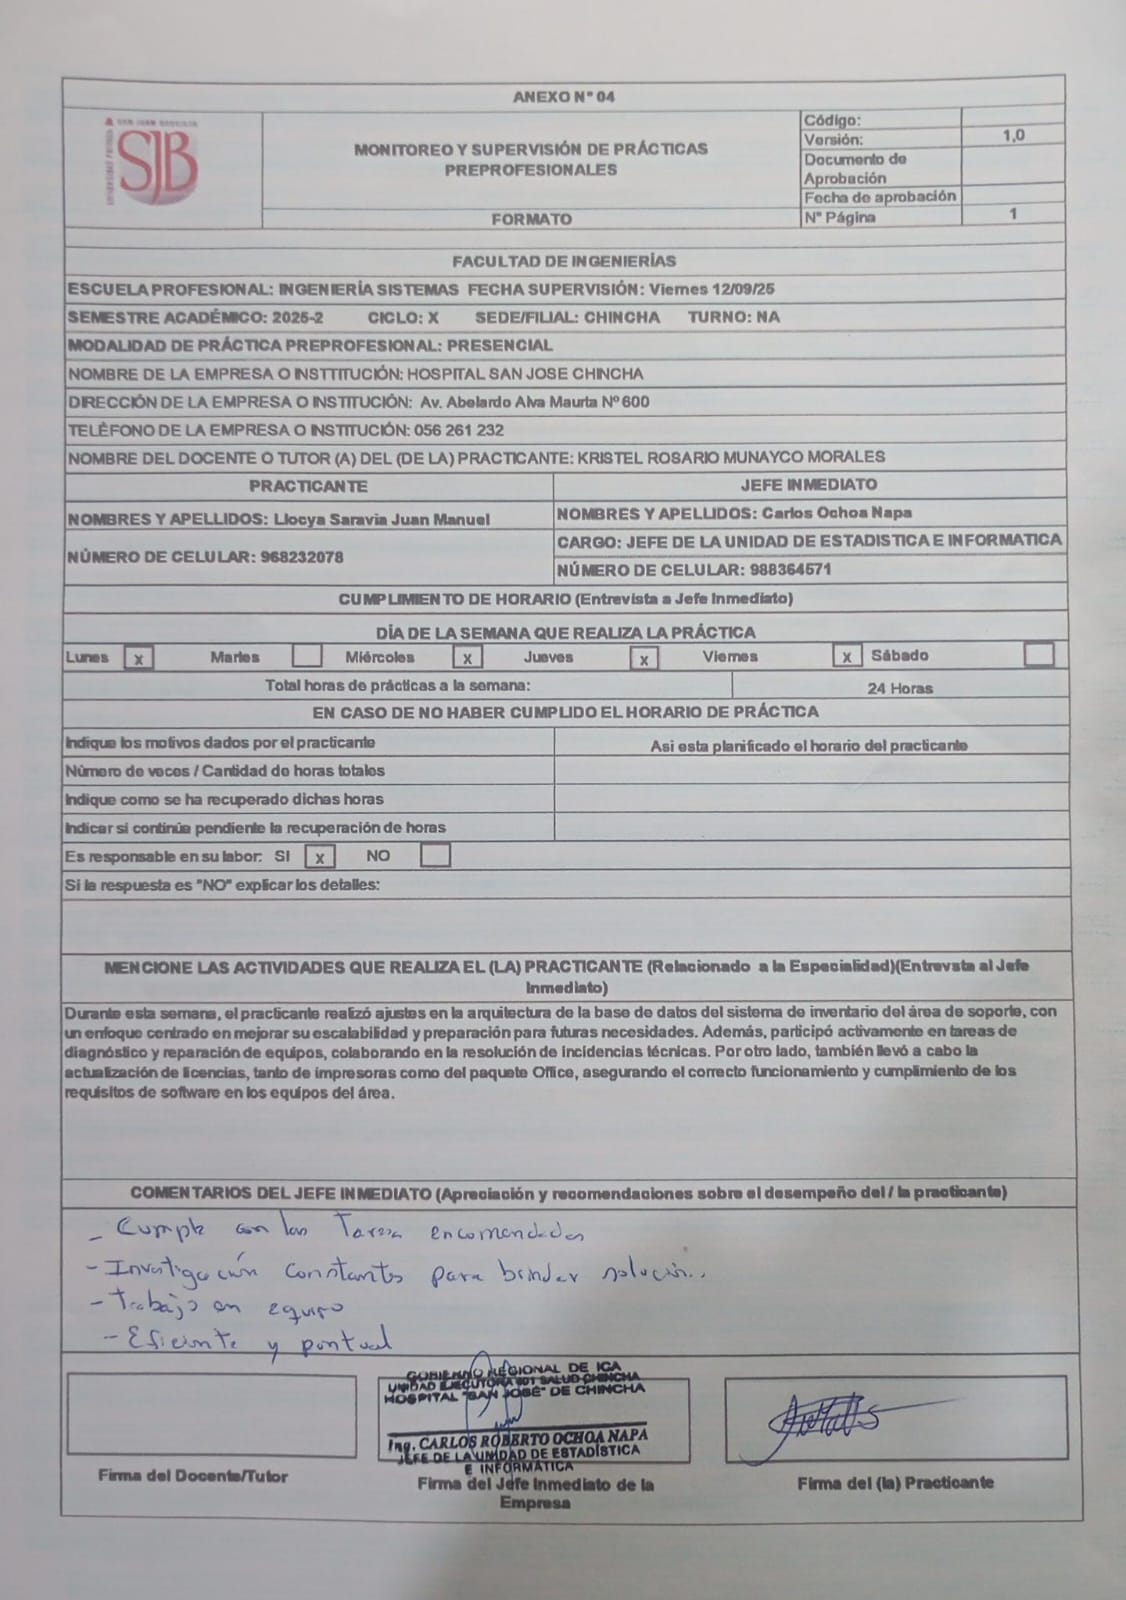 ANEXO N° 04
SAN JUAN BAUTISTA
SJB
MONITOREO Y SUPERVISIÓN DE PRÁCTICAS
PREPROFESIONALES
FORMATO
Código:
Versión: 1,0
Documento de
Aprobación
Fecha de aprobación
N° Página 1
FACULTAD DE INGENIERÍAS
ESCUELA PROFESIONAL: INGENIERÍA SISTEMAS FECHA SUPERVISIÓN: Viernes 12/09/25
SEMESTRE ACADÉMICO: 2025-2 CICLO: X SEDE/FILIAL: CHINCHA TURNO: NA
MODALIDAD DE PRÁCTICA PREPROFESIONAL: PRESENCIAL
NOMBRE DE LA EMPRESA O INSTTITUCIÓN: HOSPITAL SAN JOSE CHINCHA
DIRECCIÓN DE LA EMPRESA O INSTITUCIÓN: Av. Abelardo Alva Maurta Nº 600
TELÉFONO DE LA EMPRESA O INSTITUCIÓN: 056 261 232
NOMBRE DEL DOCENTE O TUTOR (A) DEL (DE LA) PRACTICANTE: KRISTEL ROSARIO MUNAYCO MORALES
PRACTICANTE
JEFE INMEDIATO
NOMBRES Y APELLIDOS: Llocya Saravia Juan Manuel
NOMBRES Y APELLIDOS: Carlos Ochoa Napa
CARGO: JEFE DE LA UNIDAD DE ESTADISTICA E INFORMATICA
NÚMERO DE CELULAR: 968232078
NÚMERO DE CELULAR: 988364571
CUMPLIMIENTO DE HORARIO (Entrevista a Jefe Inmediato)
DÍA DE LA SEMANA QUE REALIZA LA PRÁCTICA
Lunes x Martes Miércoles x Jueves x Viernes x Sábado
Total horas de prácticas a la semana: 24 Horas
EN CASO DE NO HABER CUMPLIDO EL HORARIO DE PRÁCTICA
Indique los motivos dados por el practicante Asi esta planificado el horario del practicante
Número de veces / Cantidad de horas totales
Indique como se ha recuperado dichas horas
Indicar si continúa pendiente la recuperación de horas
Es responsable en su labor: SI x NO
Si la respuesta es "NO" explicar los detalles:
MENCIONE LAS ACTIVIDADES QUE REALIZA EL (LA) PRACTICANTE (Relacionado a la Especialidad)(Entrevsta al Jefe
Inmediato)
Durante esta semana, el practicante realizó ajustes en la arquitectura de la base de datos del sistema de inventario del área de soporte, con
un enfoque centrado en mejorar su escalabilidad y preparación para futuras necesidades. Además, participó activamente en tareas de
diagnóstico y reparación de equipos, colaborando en la resolución de incidencias técnicas. Por otro lado, también llevó a cabo la
actualización de licencias, tanto de impresoras como del paquete Office, asegurando el correcto funcionamiento y cumplimiento de los
requisitos de software en los equipos del área.
COMENTARIOS DEL JEFE INMEDIATO (Apreciación y recomendaciones sobre el desempeño del / la practicante)
- Cumple con las Tarea encomendadas
- Investigación constantes para brindar solución..
- Trabajo en equipo
- Eficiente y puntual
GOBIERNO REGIONAL DE ICA
UNIDAD EJECUTORA 401 SALUD CHINCHA
HOSPITAL "SAN JOSÉ" DE CHINCHA
Ing. CARLOS ROBERTO OCHOA NAPA
JEFE DE LA UNIDAD DE ESTADÍSTICA
E INFORMÁTICA
Firma del Docente/Tutor
Firma del Jefe Inmediato de la
Empresa
Firma del (la) Practicante